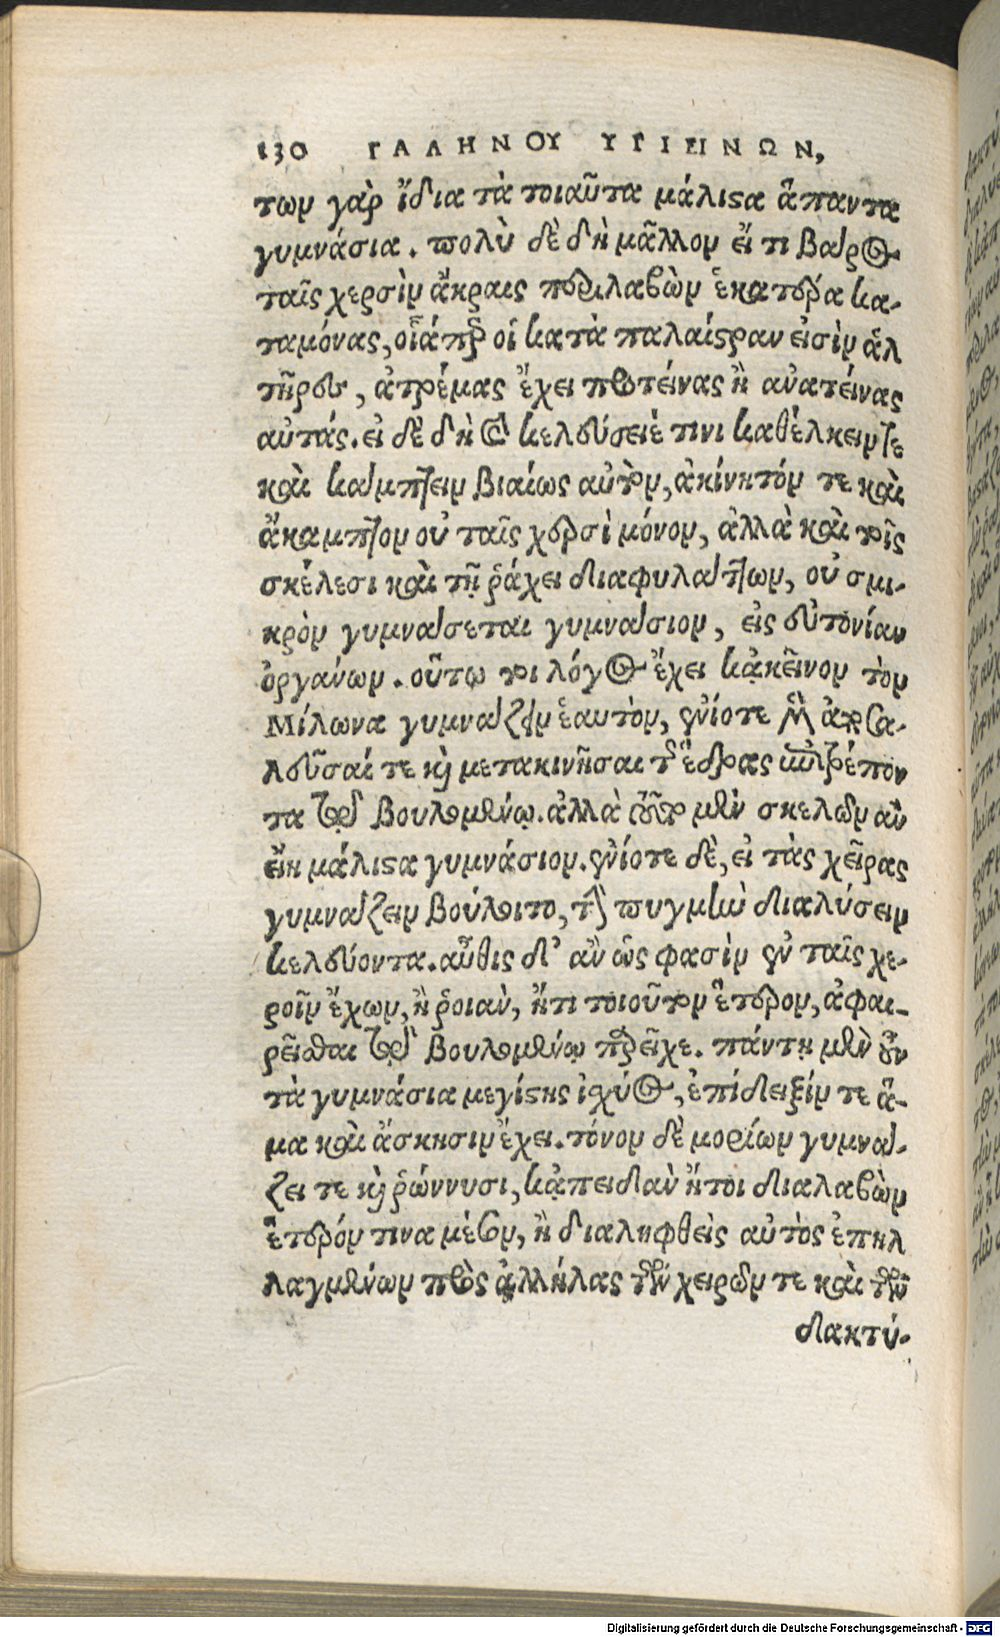 130 ΓΑΛΗΝΟΥ ΥΓΙΕΙΝΩΝ,
των γὰρ ἴδια τὰ τοιαῦτα μάλιϛα ἅπαντα
γυμνάσια. πολὺ δὲ δὴ μᾶλλον εἴ τι βάρος
ταῖς χερσὶν ἄκραις περιλαβὼν ἑκατέρᾳ κα-
ταμόνας, οἷάπερ οἱ κατὰ παλαίϛραν εἰσὶν ἁλ
τῆρες, ἀτρέμας ἔχει προτείνας ἢ ἀνατείνας
αὐτάς. εἰ δὲ δὴ καὶ κελεύσειέ τινι καθέλκειν τε
καὶ κάμπτειν βιαίως αὐτὸν, ἀκίνητόν τε καὶ
ἄκαμπτον οὐ ταῖς χερσὶ μόνον, ἀλλὰ καὶ τοῖς
σκέλεσι καὶ τῇ ῥάχει διαφυλάττων, οὐ σμι-
κρὸν γυμνάσεται γυμνάσιον, εἰς εὐτονίαν
ὀργάνων. οὕτω τοι λόγος ἔχει κᾀκεῖνον τὸν
Μίλωνα γυμνάζειν ἑαυτὸν, ἐνίοτε μὲν ἀποσα-
λεῦσαί τε καὶ μετακινῆσαι τῆς ἕδρας ἐπιτρέπον
τα τῷ βουλομένῳ. ἀλλὰ τοῦτο μὲν σκελῶν ἂν
εἴη μάλιϛα γυμνάσιον. ἐνίοτε δὲ, εἰ τὰς χεῖρας
γυμνάζειν βούλοιτο, τὴν πυγμὴν διαλύσειν
κελεύοντα. αὖθις δ' ἂν ὥς φασὶν ἐν ταῖς χε-
ροῖν ἔχων, ἢ ῥοιὰν, ἤτι τοιοῦτον ἕτερον, ἀφαι-
ρεῖσθαι τῷ βουλομένῳ παρεῖχε. πάντη μὲν οὖν
τὰ γυμνάσια μεγίϛης ἰσχύος, ἐπίδειξίν τε ἅ-
μα καὶ ἄσκησιν ἔχει. τόνον δὲ μορίων γυμνά-
ζει τε καὶ ῥώννυσι, κᾀπειδὰν ἤτοι διαλαβὼν
ἕτερόν τινα μέσον, ἢ διαληφθεὶς αὐτὸς ἐπηλ
λαγμένων πρὸς ἀλλήλας τῶν χειρῶν τε καὶ τῶν
δακτύ-
Digitalisierung gefördert durch die Deutsche Forschungsgemeinschaft - DFG